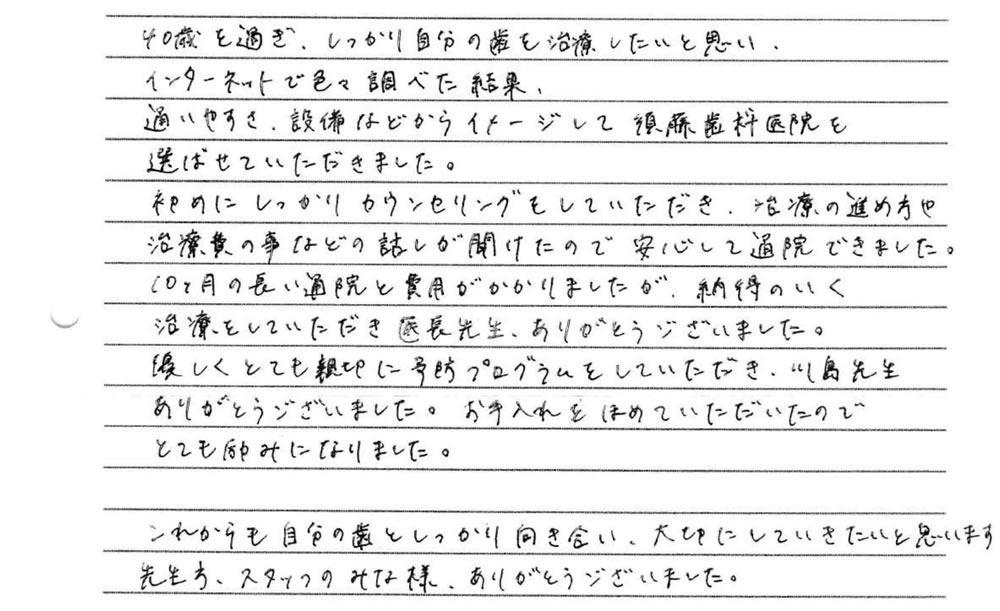 40歳を過ぎ、しっかり自分の歯を治療したいと思い、
インターネットで色々調べた結果、
通いやすさ、設備などからイメージして須藤歯科医院を
選ばせていただきました。
初めにしっかりカウンセリングをしていただき、治療の進め方や
治療費の事などの話しが聞けたので安心して通院できました。
10ヶ月の長い通院と費用がかかりましたが、納得のいく
治療をしていただき医長先生、ありがとうございました。
優しくとても親切に予防プログラムをしていただき、川島先生
ありがとうございました。お手入れをほめていただいたので
とても励みになりました。
これからも自分の歯としっかり向き合い、大切にしていきたいと思います
先生方、スタッフのみな様、ありがとうございました。